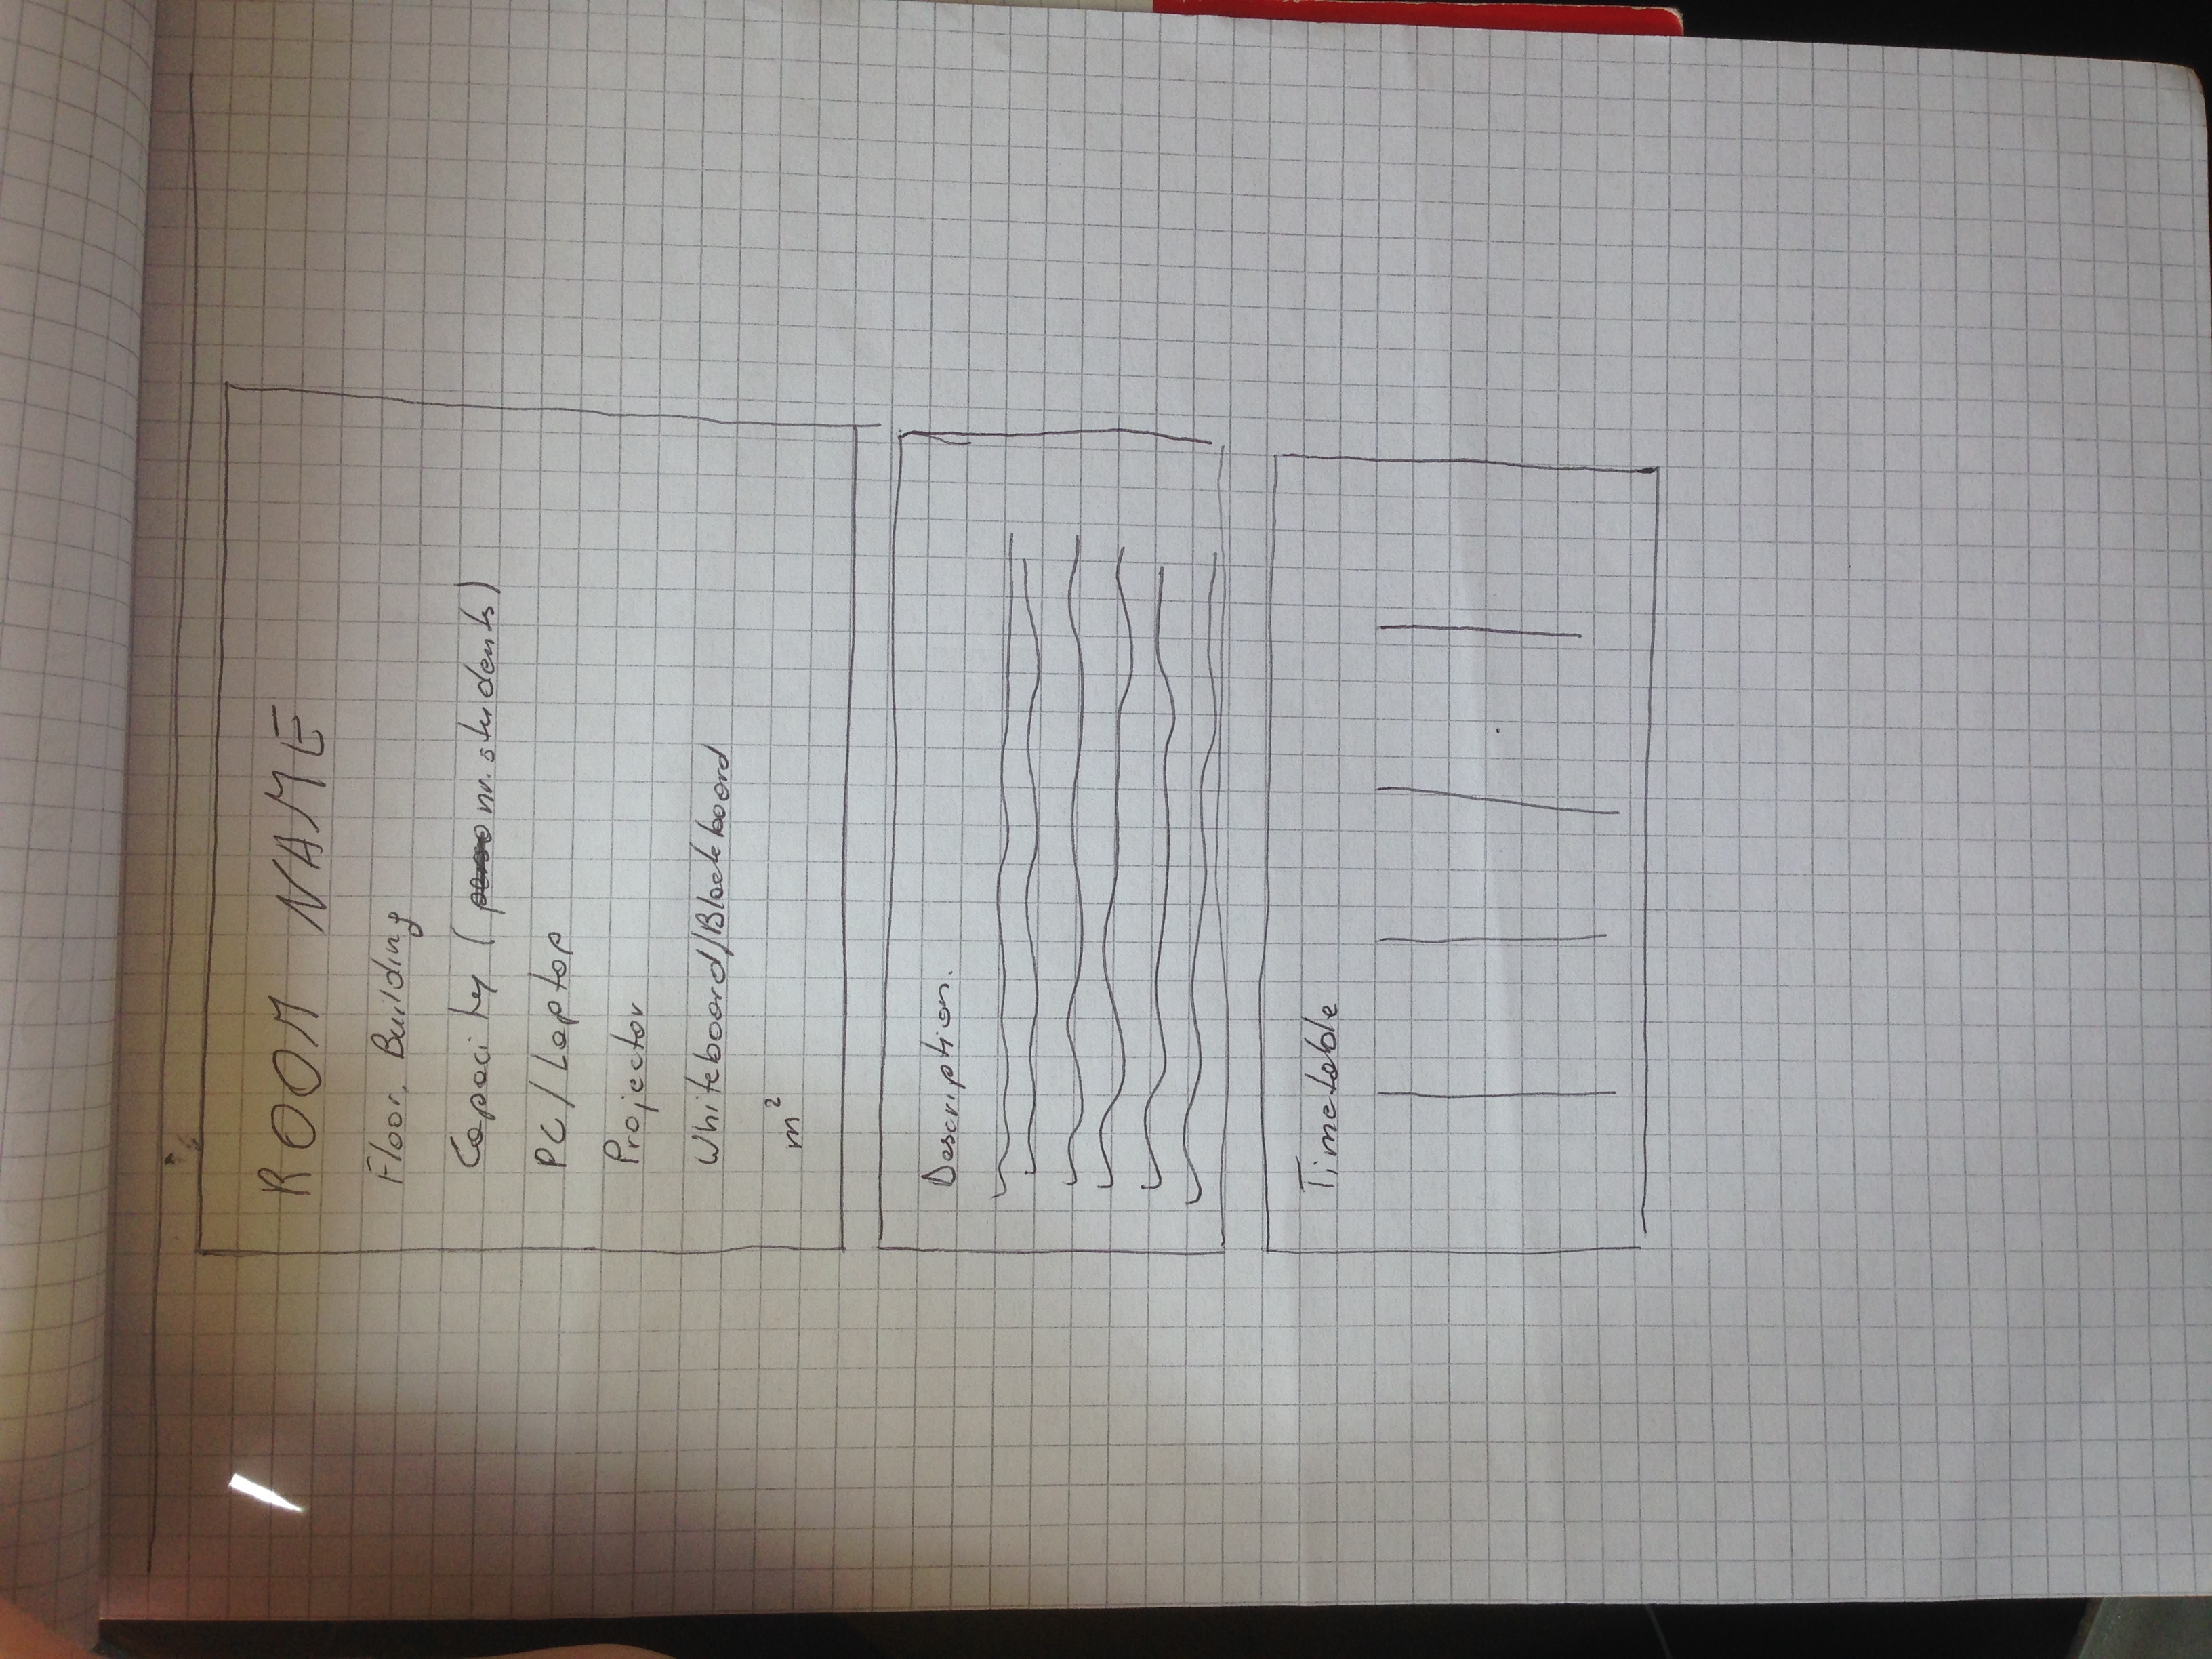 ROOM NAME
Floor, Building
Capacity (nr. students)
PC/Laptop
Projector
Whiteboard/Blackboard
m²
Description.
Timetable